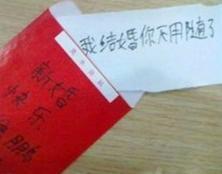 我结婚你不用随了
新婚
快乐
鹏